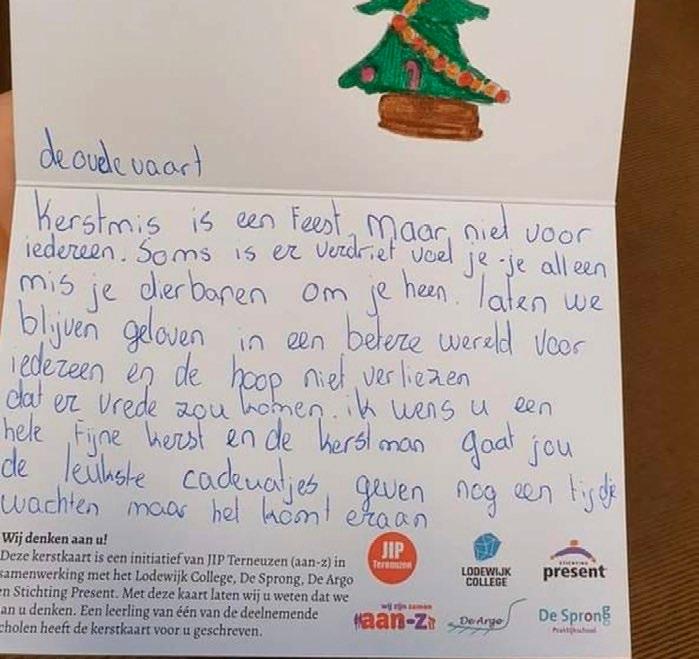 de oude vaart
Kerstmis is een Feest, maar niet voor
iedereen. Soms is er verdriet voel je -je alleen
mis je dierbaren om je heen. laten we
blijven geloven in een betere wereld voor
iedereen en de hoop niet verliezen
dat er vrede zou komen. ik wens u een
hele Fijne kerst en de kerstman gaat jou
de leukste cadeuatjes geven nog een tijdje
wachten maar het komt eraan
Wij denken aan u!
Deze kerstkaart is een initiatief van JIP Terneuzen (aan-z) in
samenwerking met het Lodewijk College, De Sprong, De Argo
en Stichting Present. Met deze kaart laten wij u weten dat we
an u denken. Een leerling van één van de deelnemende
cholen heeft de kerstkaart voor u geschreven.
JIP
Terneuzen
LODEWIJK
COLLEGE
STICHTING
present
wij zijn samen
aan-z
De Argo
De Sprong
Praktijkschool